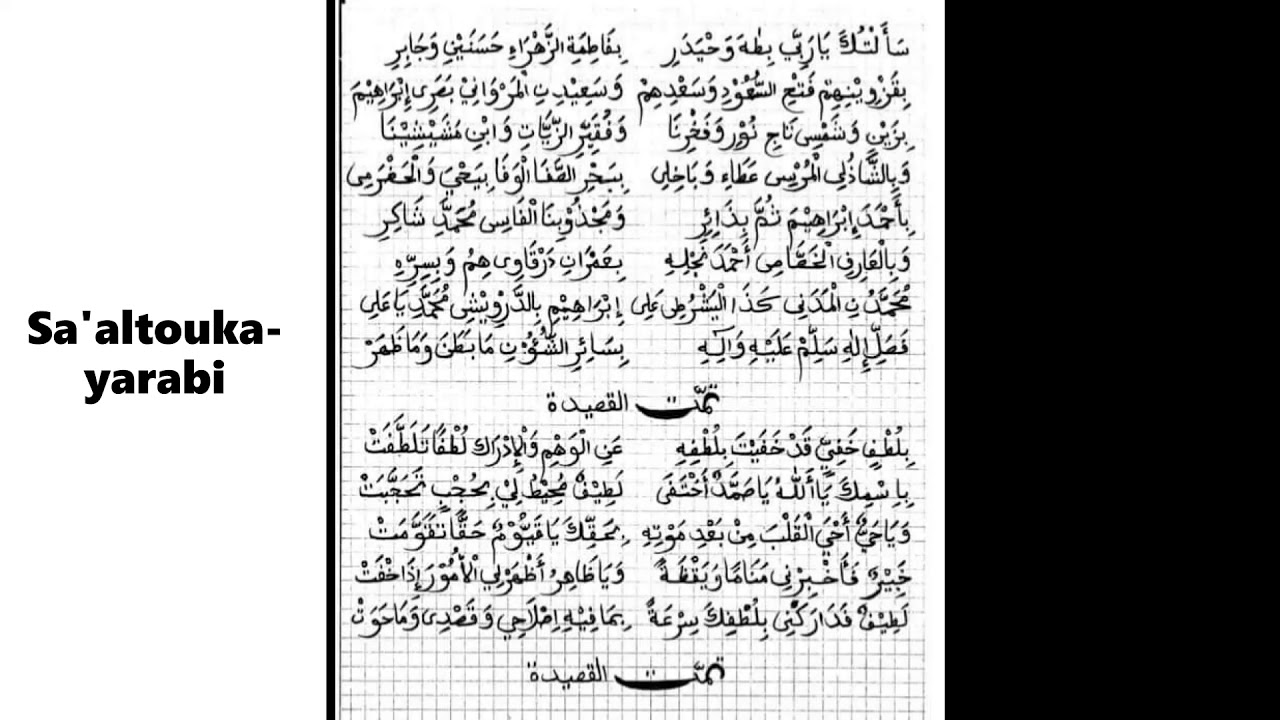 Sa'altouka-
yarabi
سَأَلْتُكَ يَا رَبِّي بِطٰهَ وَحَيْدَرِ بِفَاطِمَةِ الزَّهْرَاءِ حَسَنَيْنِ وَجَابِرِ
بِقَزْوِيْنِهِمْ فَتْحِ السُّعُوْدِ وَسَعْدِهِمْ وَسَعِيْدِنِ الْمَرْوَانِيْ بَصَرِى إِبْرَاهِيْمَ
بِزَيْنِ وَشَمْسِ تَاجِ نُوْرِ وَفَخْرِنَا وَفُقَيِّرِ الزَّيَّاتِ وَابْنِ مَشَيْشِيْنَا
وَبِالشَّاذُلِى الْمُرْسِى عَطَاءِ وَبَاخِلِى بِبَحْرِ الصَّفَا الْوَفَا بِيَحْيَ وَالْحَضْرَمِى
بِأَحْمَدَ إِبْرَاهِيْمَ ثُمَّ بِذَائِرِ وَمَجْذُوْبِنَا الْفَاسِى مُحَمَّدِ شَاكِرِ
وَبِالْعَارِفِ الْخَصَّامِى أَحْمَدَ نَجْلِهِ بِعَمْرَانِ دَرْقَاوِى هِمُ وَبِسِرِّهِ
مُحَمَّدُنِ الْمَدَنِى كَذَا الْيَشْرُطِى عَلِى إِبْرَاهِيْمِ بِالدَّرْوِيْشِى مُحَمَّدِ يَا عَلِى
فَصَلِّ إِلٰهِ سَلِّمْ عَلَيْهِ وَآلِهِ بِسَائِرِ الشُّئُوْنِ مَا بَطَنَ وَمَا ظَهَرْ
تمَّت القصيدة
بِلُطْفٍ خَفِيٍّ قَدْ خَفَيْتَ بِلُطْفِهِ عَنِ الْوَهْمِ وَالْإِدْرَاكِ لُطْفًا تَلَطَّفَتْ
بِاسْمِكَ يَا أَللهُ يَا صَمَدٌ أَخْتَفَى لَطِيْفٌ مُحِيْطٌ لِيْ بِحُجْبٍ تَحَجَّبَتْ
وَيَا حَيُّ أَحْيِ الْقَلْبَ مِنْ بَعْدِ مَوْتِهِ بِحَقِّكَ يَا قَيُّوْمُ حَقًّا تَقَوَّمَتْ
خَبِيْرٌ فَأَخْبِرْنِى مَنَامًا وَيَقْظَةً وَيَا ظَاهِرُ أَظْهَرْ لِي الْأُمُوْرَ إِذَا خَفَتْ
لَطِيْفٌ فَدَارِكْنِى بِلُطْفِكَ سِرْعَةً بِمَا فِيْهِ إِصْلَاحِي وَقَصْدِى وَمَا حَوَتْ
تمَّت القصيدة